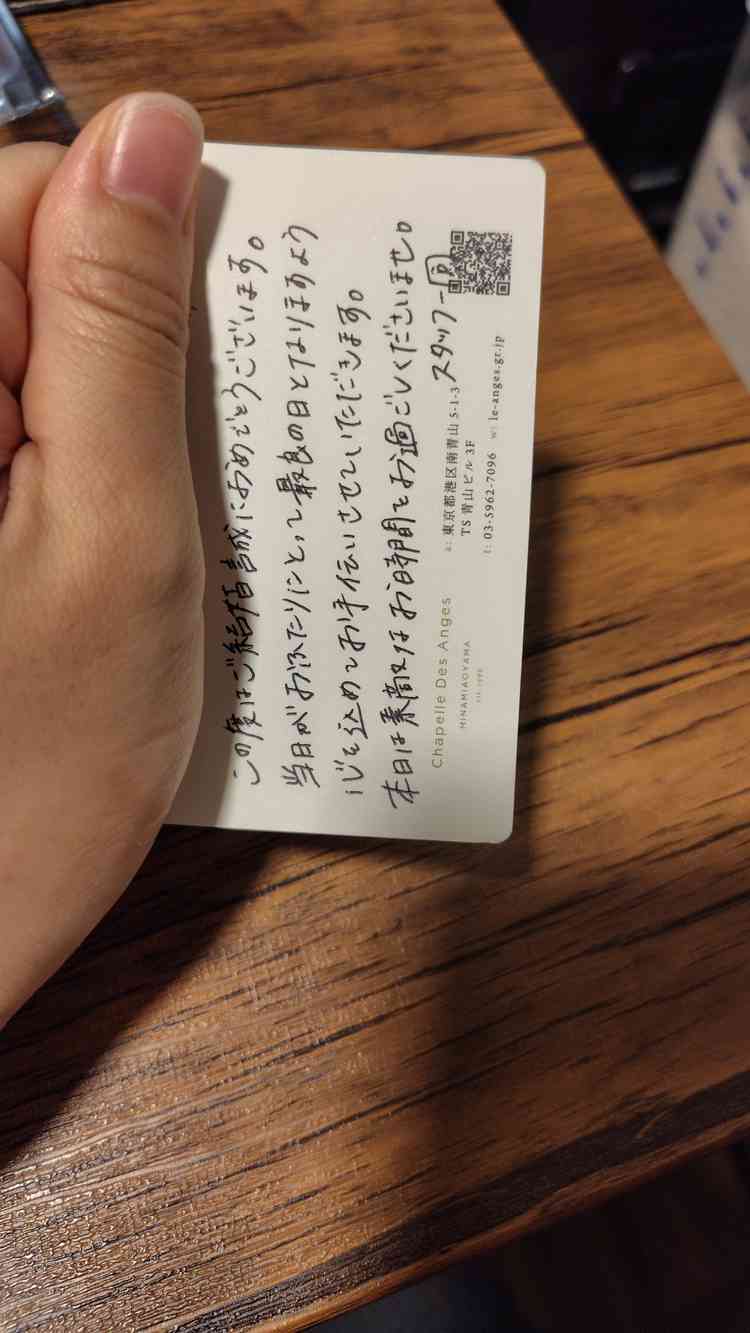 この度はご結婚誠におめでとうございます。
当日がおふたりにとって最良の日となりますよう
心を込めてお手伝いさせていただきます。
本日は素敵なお時間をお過ごしくださいませ。
スタッフ一同
Chapelle Des Anges
MINAMIAOYAMA
a: 東京都港区南青山 5-1-3
TS 青山ビル 3F
t: 03-5962-7096 w: le-anges.gr.jp